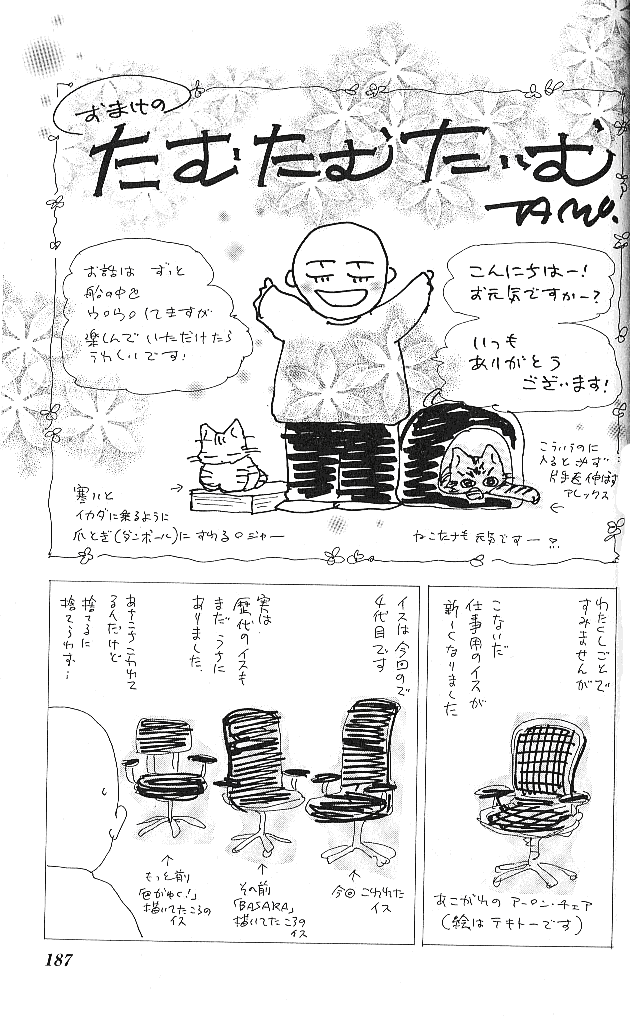 おまけの
たむたむたいむ
TAMU.
こんにちはー!
お元気ですかー?
いつも
ありがとう
ございます!
お話は ずっと
船の中を
ウロウロしてますが
楽しんでいただけたら
うれしいです!
こういうのに
入ると必ず
片手を伸ばす
アレックス
寒いと
イカダに乗るように
爪とぎ(ダンボール)に すわるロジャー
ねこたちも 元気ですー
わたくしごとで
すみませんが
こないだ
仕事用のイスが
新しくなりました
あこがれの アーロン・チェア
(絵は テキトーです)
イスは今回ので
4代目です
実は
歴代のイスも
まだうちに
ありました。
あちこちこわれて
るんだけど
捨てるに
捨てられず…
今回 こわれた
イス
その前
「BASARA」
描いてたころの
イス
もっと前
描いてたころの
イス
187